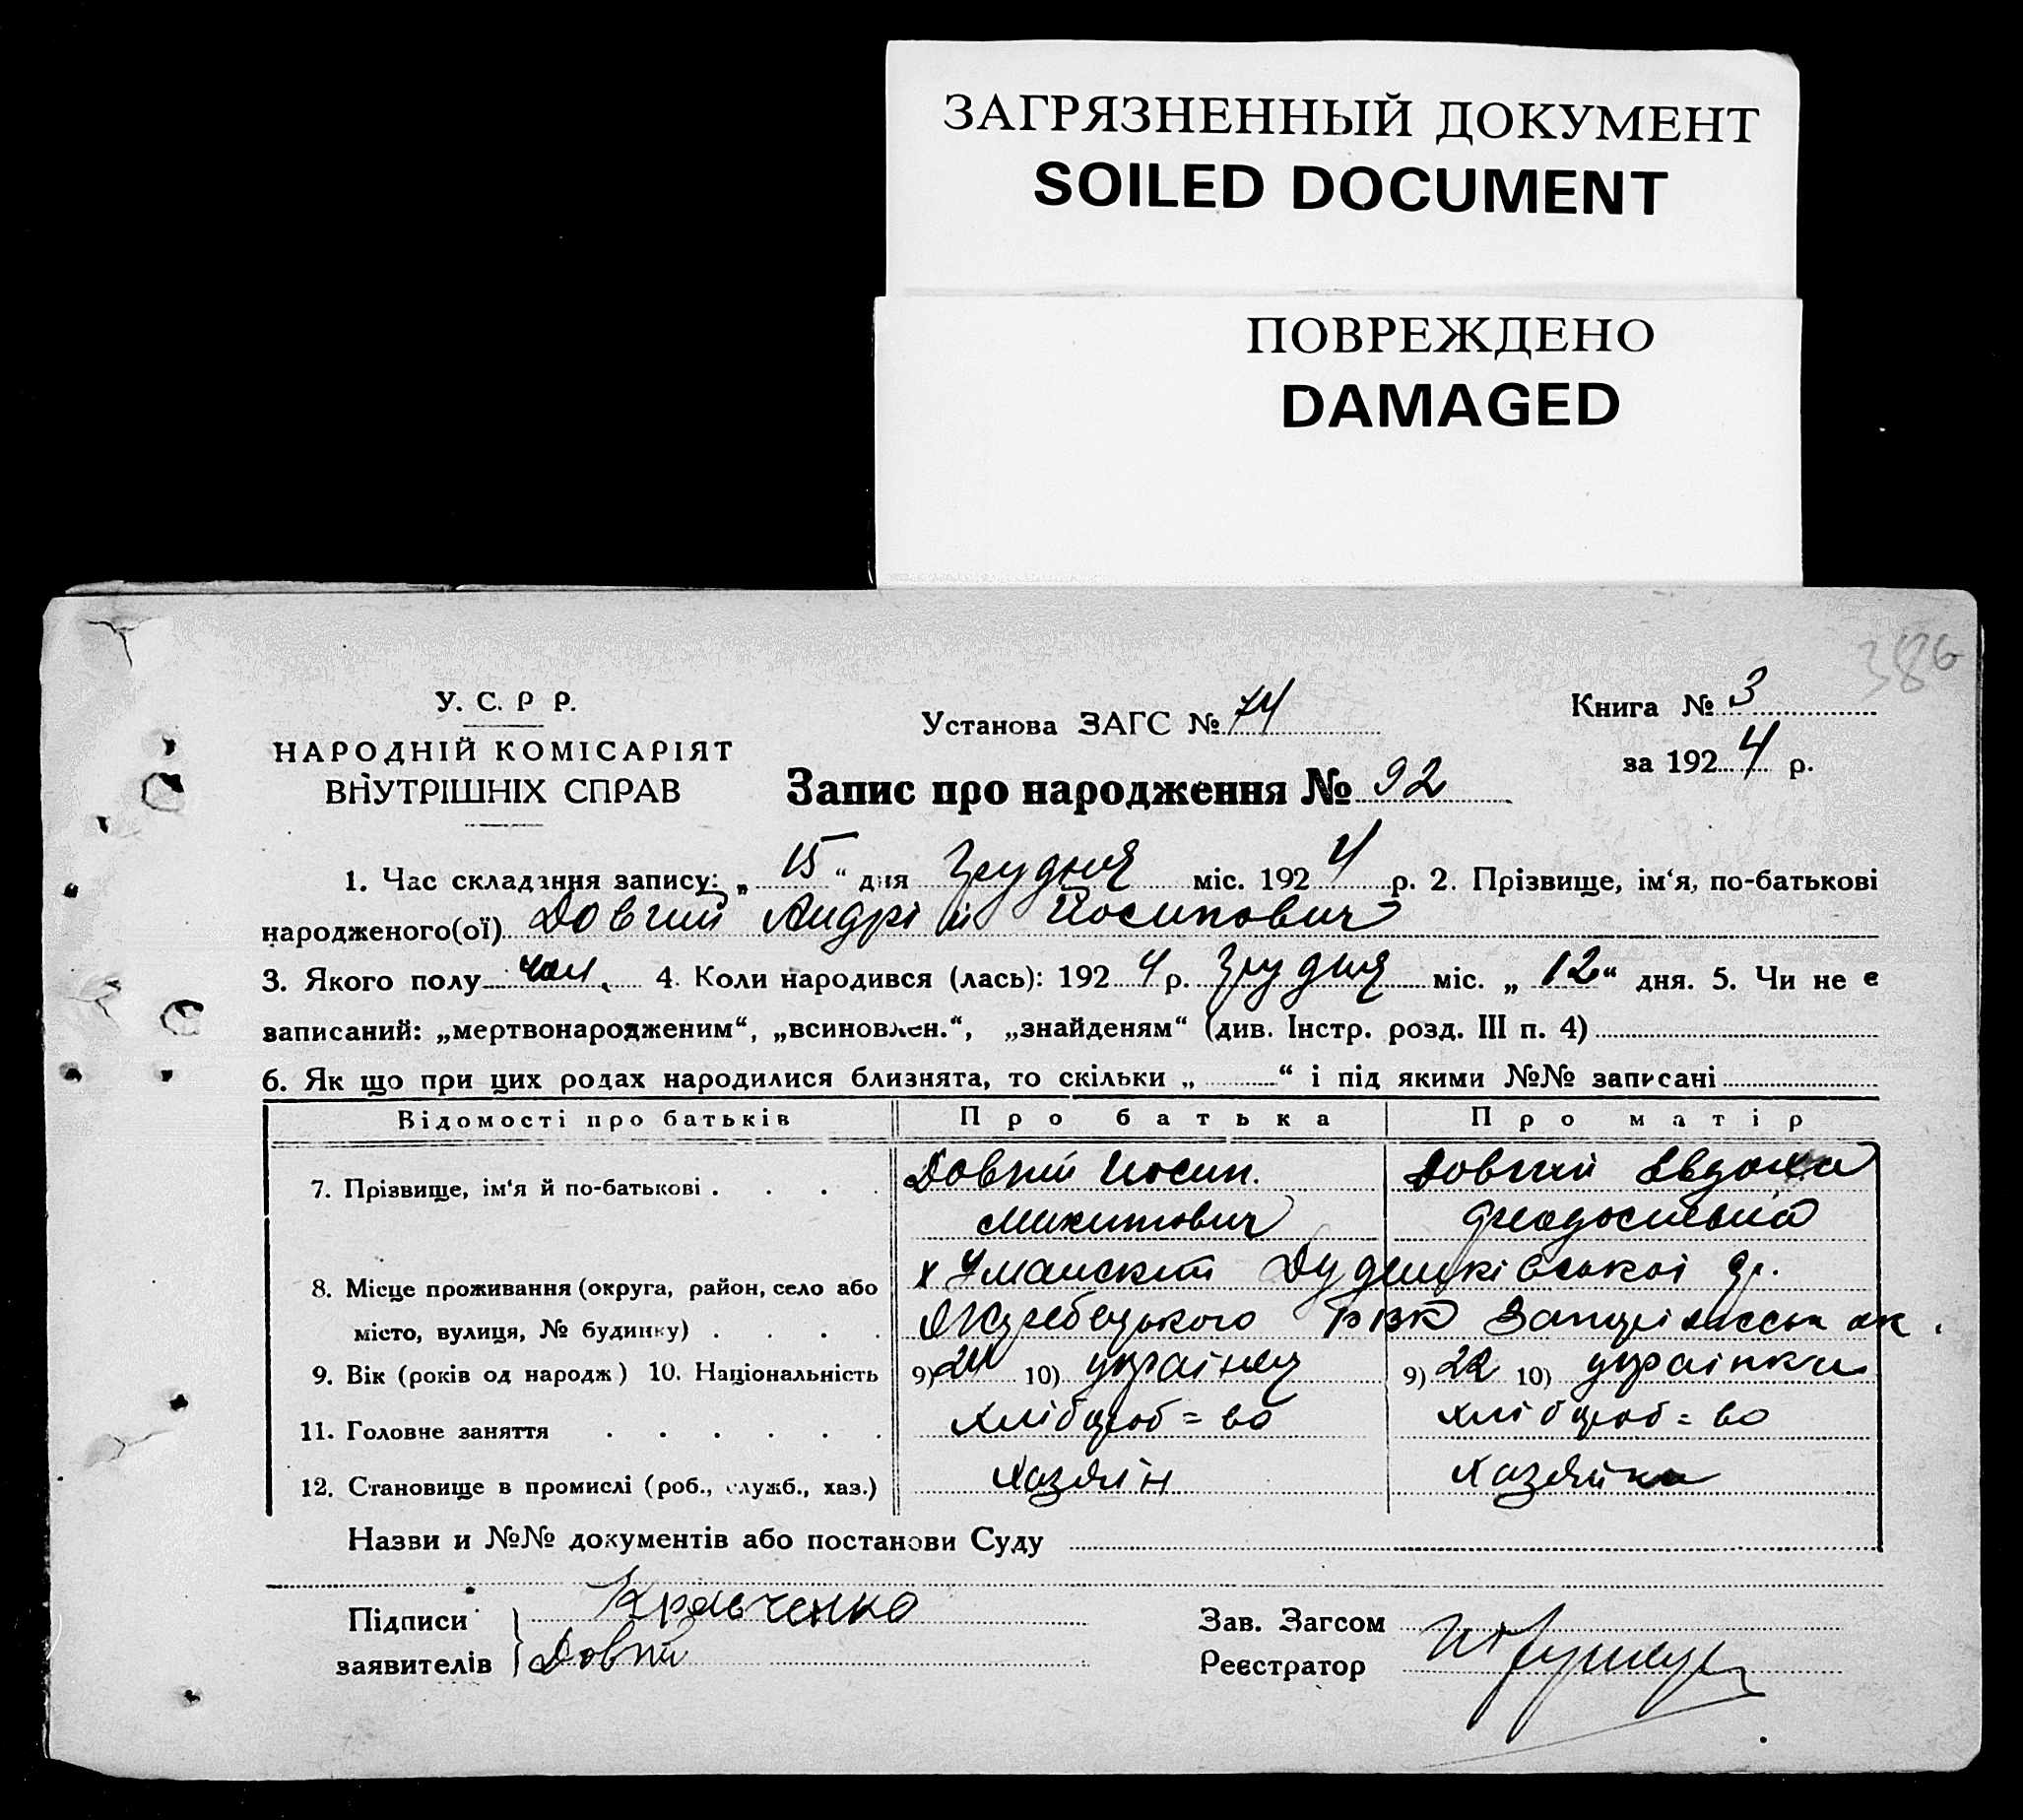 ЗАГРЯЗНЕННЫЙ ДОКУМЕНТ
SOILED DOCUMENT
ПОВРЕЖДЕНО
DAMAGED
386
У. С. Р Р.
НАРОДНІЙ КОМІСАРІЯТ
ВНУТРІШНІХ СПРАВ
Установа ЗАГС № 74
Книга № 3
за 1924 р.
Запис про народження № 92
1. Час складання запису: „15“ дня Грудня міс. 1924 р. 2. Прізвище, ім‘я, по-батькові
народженого(ої) Довгий Андрій Йосипович
3. Якого полу чол. 4. Коли народився (лась): 1924 р. Грудня міс. „12“ дня. 5. Чи не є
записаний: „мертвонародженим“, „всиновлен.“, „знайденям“ (див. Інстр. розд. III п. 4)
6. Як що при цих родах народилися близнята, то скільки „ “ і під якими №№ записані
Відомості про батьків Про батька Про матір
7. Прізвище, ім‘я й по-батькові . . . . Довгий Иосип. Довгий Евдоха
Микитович Феодосиевна
8. Місце проживання (округа, район, село або х Уманский
місто, вулиця, № будинку) . . . . Жеребецького РВК
9. Вік (років од народж) 10. Національність 9) 24 10) українец 9) 22 10) українка
11. Головне заняття . . . . . . хлібороб=во хлібороб=во
12. Становище в промислі (роб., служб., хаз.) хазяін хазяйка
Назви и №№ документів або постанови Суду
Підписи Кравченко Зав. Загсом
заявителів Довгий Реєстратор